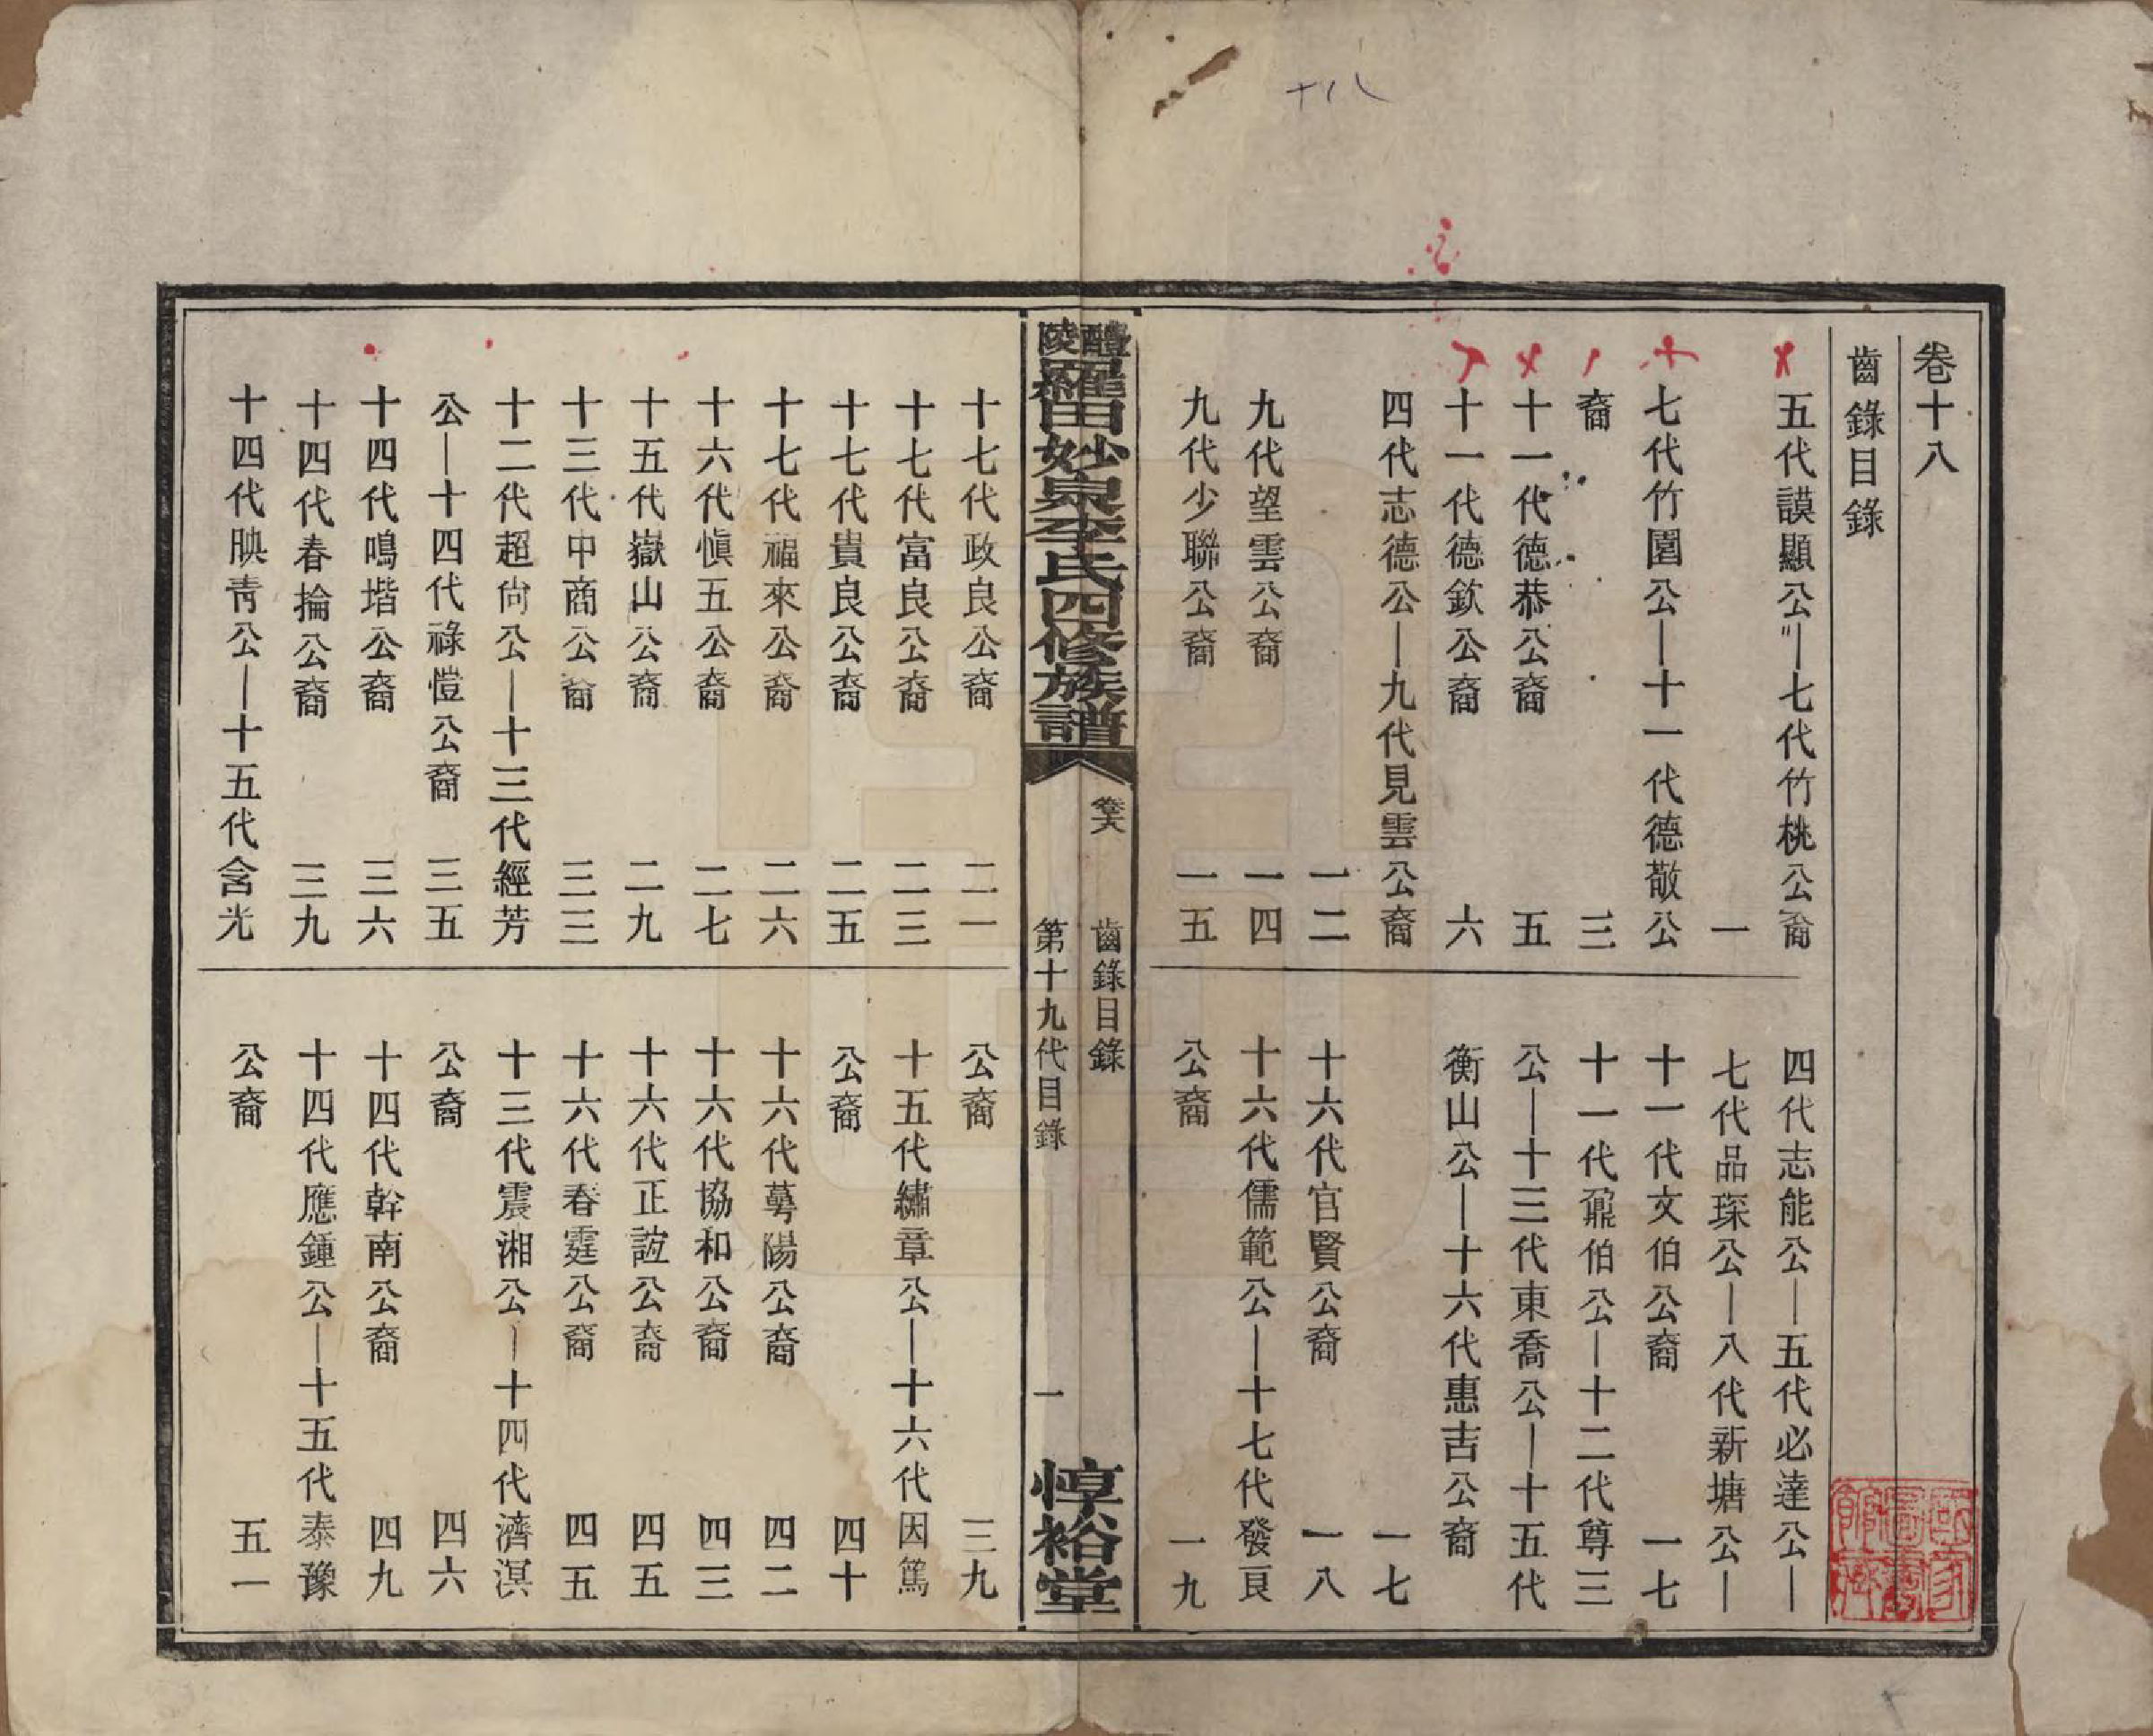 卷十八
齒錄目錄
五代謨顯公—七代竹桃公裔
一
七代竹園公—十一代德敬公
裔 三
十一代德恭公裔 五
十一代德欽公裔 六
四代志德公—九代見雲公裔
一二
九代望雲公裔 一四
九代少聯公裔 一五
四代志能公—五代必達公—
七代品琛公—八代新塘公—
十一代文伯公裔 一七
十一代鼐伯公—十二代尊三
公—十三代東喬公—十五代
衡山公—十六代惠吉公裔
一七
十六代官賢公裔 一八
十六代儒範公—十七代發良
公裔 一九
醴陵羅田妙泉李氏四修族譜
卷十八
齒錄目錄
第十九代目錄
一
惇裕堂
十七代政良公裔 二一
十七代富良公裔 二三
十七代貴良公裔 二五
十七代福來公裔 二六
十六代慎五公裔 二七
十五代嶽山公裔 二九
十三代中商公裔 三三
十二代超尚公—十三代經芳
公—十四代祿愷公裔 三五
十四代鳴堦公裔 三六
十四代春掄公裔 三九
十四代映青公—十五代含光
公裔 三九
十五代繡章公—十六代因篤
公裔 四十
十六代萼陽公裔 四二
十六代協和公裔 四三
十六代正誼公裔 四五
十六代春霆公裔 四五
十三代震湘公—十四代濟溟
公裔 四六
十四代幹南公裔 四九
十四代應鍾公—十五代泰豫
公裔 五一
十八